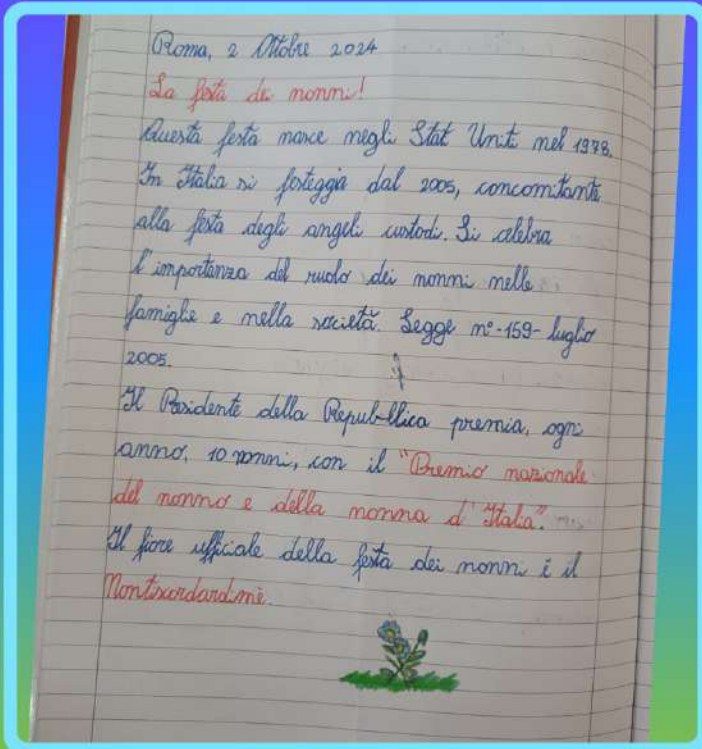 Roma, 2 Ottobre 2024
La festa dei nonni!
Questa festa nasce negli Stati Uniti nel 1978.
In Italia si festeggia dal 2005, concomitante
alla festa degli angeli custodi. Si celebra
l'importanza del ruolo dei nonni nelle
famiglie e nella società. Legge n°-159-luglio
2005.
Il Presidente della Repubblica premia, ogni
anno, 10 nonni, con il "Premio nazionale
del nonno e della nonna d'Italia".
Il fiore ufficiale della festa dei nonni è il
Nontiscordardimè.